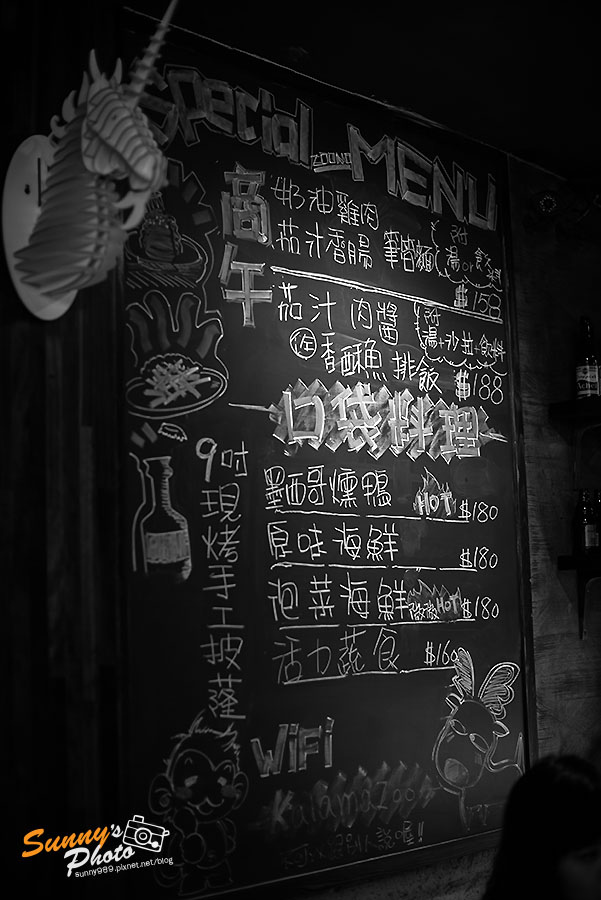 Special ZOONO MENU
商午
奶油雞肉
茄汁香腸 筆管麵 附湯or飲料
$158
茄汁肉醬 附湯+沙拉+飲料
佐香酥魚排飯 $188
口袋料理
墨西哥燻鴨 HOT $180
原味海鮮 $180
泡菜海鮮 微微HOT $180
活力蔬食 $160
9吋現烤手工披薩
WiFi
KalamaZoo
Sunny's Photo
sunny989.pixnet.net/blog